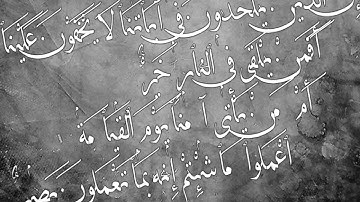 الذين يلحدون في آياتنا لا يخفون علينا
أفمن يلقى في النار خير
أم من يأتى آمنا يوم القيامة
اعملوا ما شئتم إنه بما تعملون بصير